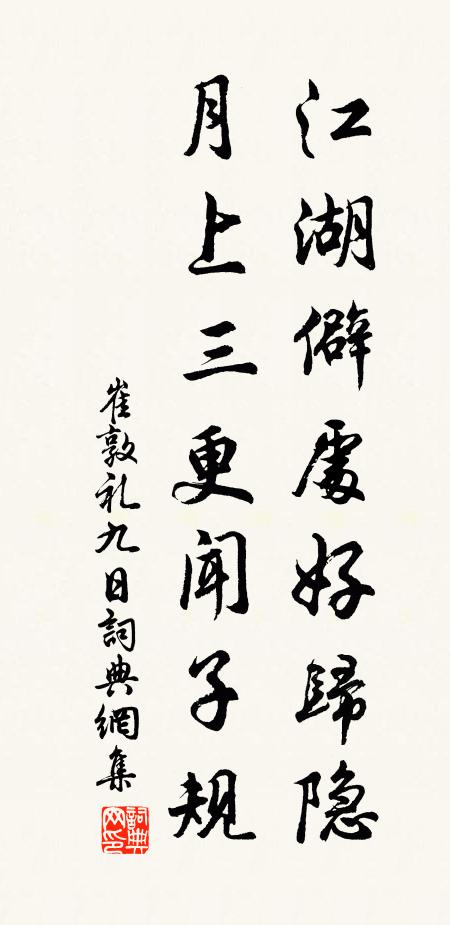 江湖僻處好歸隐
月上三更闻子規
崔敦礼九日詞典網集
詞典网印